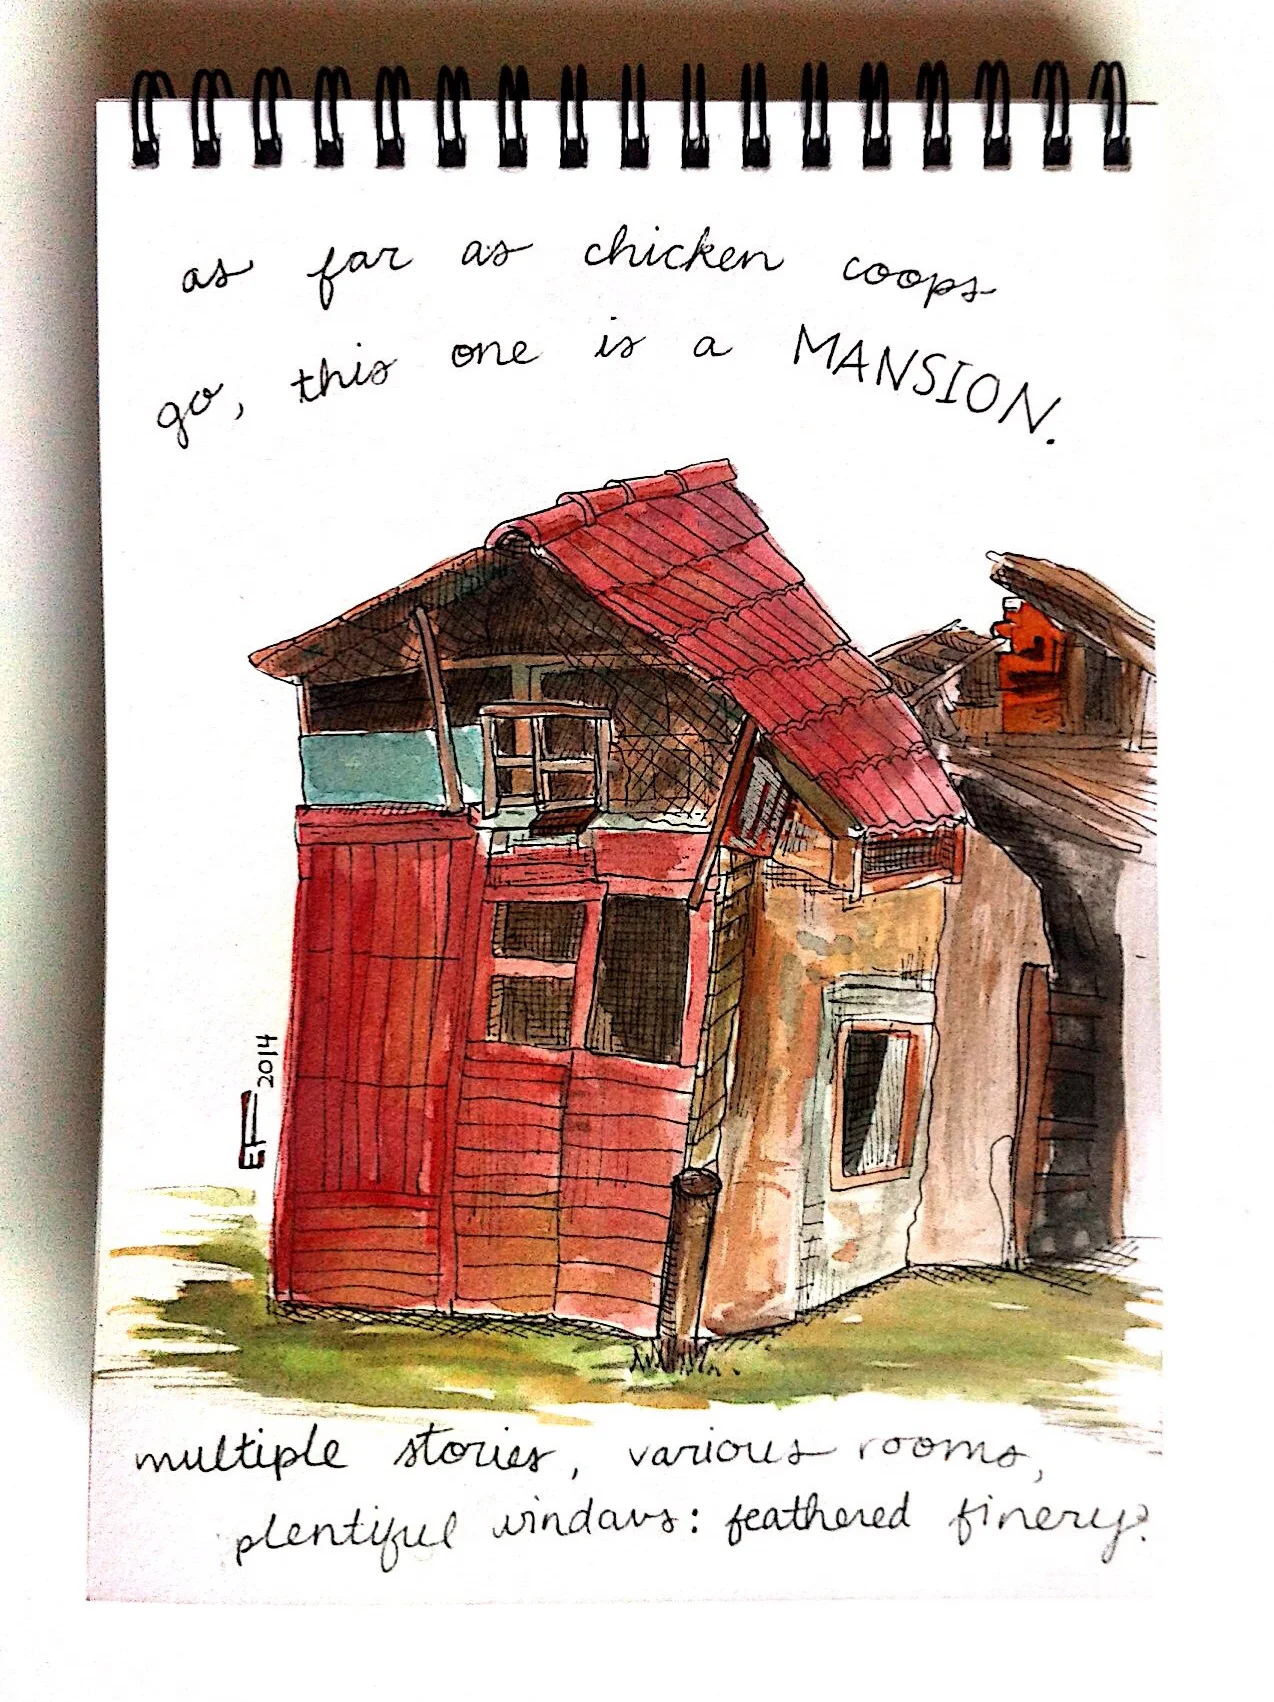 as far as chicken coops
go, this one is a MANSION.
EF 2014
multiple stories, various rooms,
plentiful windows: feathered finery?